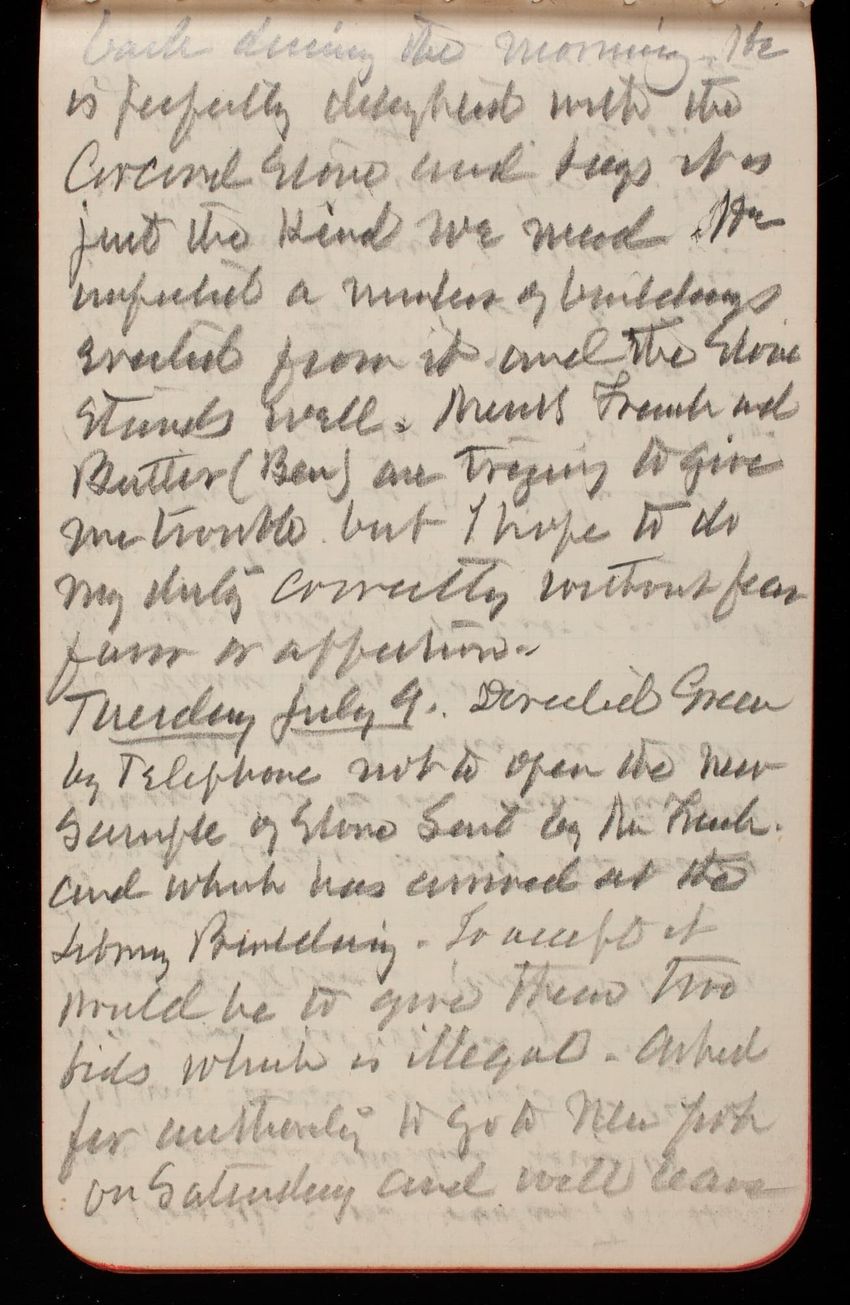 back during the morning. He
is perfectly delighted with the
Concord Stone and says it is
just the kind we need. He
inspected a number of buildings
erected from it and the Stone
Stands well. French and
Butler (Ben) are trying to give
me trouble but I hope to do
my duty correctly without fear
favor or affection.
Tuesday July 9. Directed Green
by Telephone not to open the new
Sample of Stone Sent by Mr French.
and which has arrived at the
Library Building. To accept it
would be to give them two
bids which is illegal. Asked
for authority to go to New York
on Saturday and will leave